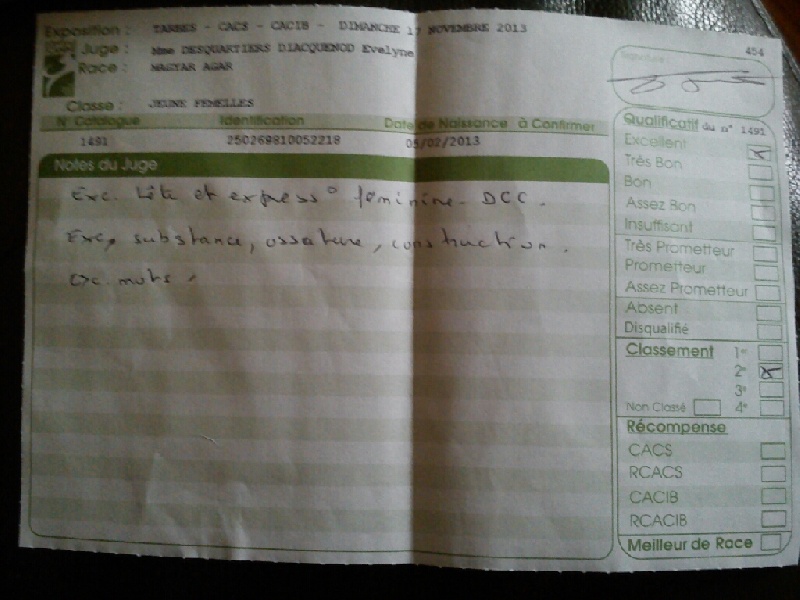 Exposition : TARBES - CACS - CACIB - DIMANCHE 17 NOVEMBRE 2013
Juge : Mme DESQUARTIERS DIACQUENOD Evelyne
Race : MAGYAR AGAR
Classe : JEUNE FEMELLES
454
Signature :
N° Catalogue Identification Date de Naissance à Confirmer
1491 250269810052218 05/02/2013
Notes du Juge
Exc. tête et express° féminine. DCC.
Exc, substance, ossature, construction.
Exc. mvts,
Qualificatif du n° 1491
Excellent
Très Bon
Bon
Assez Bon
Insuffisant
Très Prometteur
Prometteur
Assez Prometteur
Absent
Disqualifié
Classement 1er
2e
3e
Non Classé 4e
Récompense
CACS
RCACS
CACIB
RCACIB
Meilleur de Race